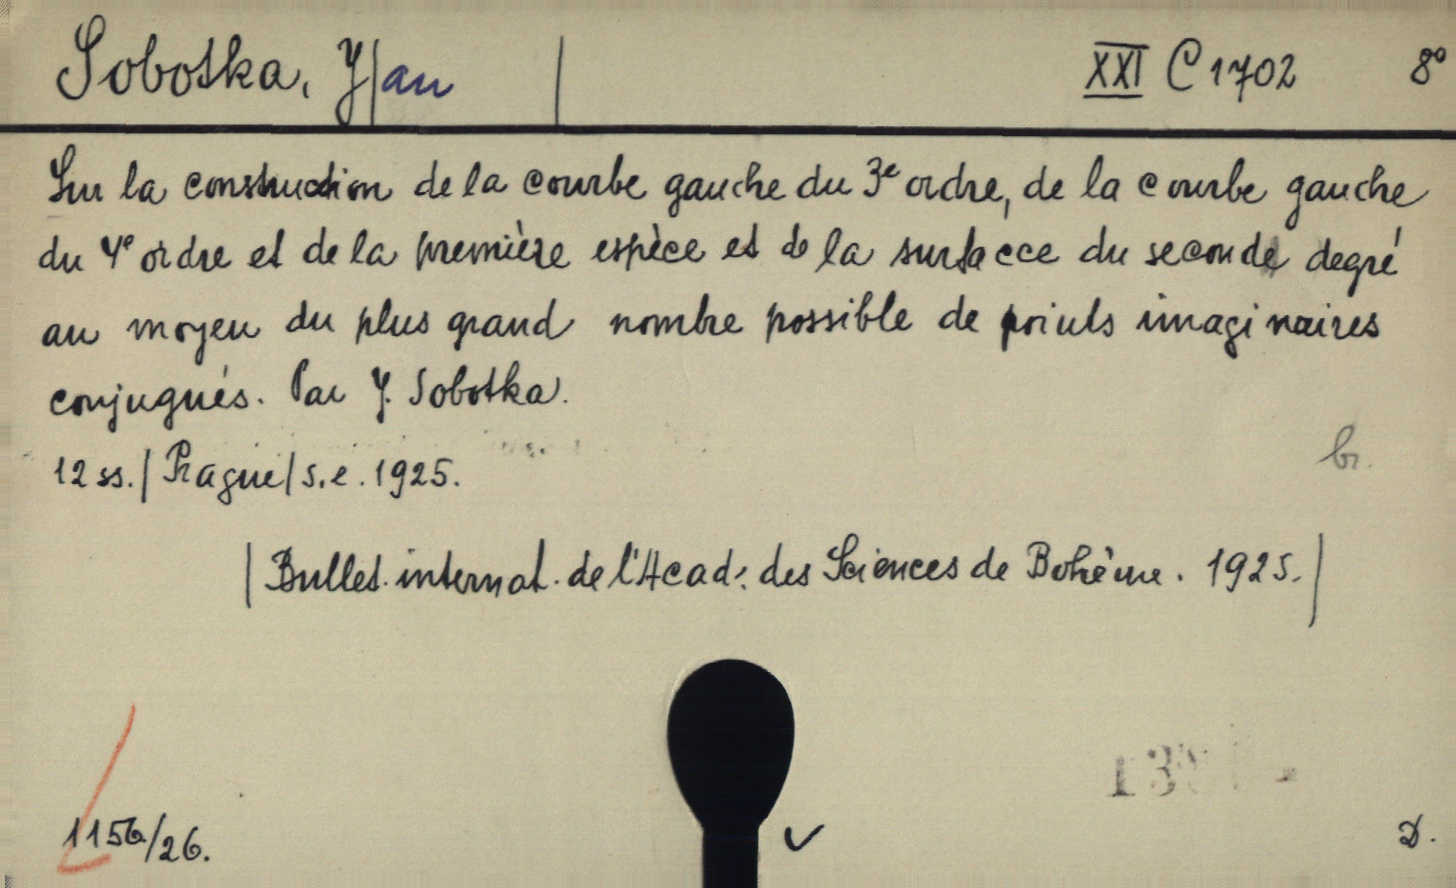 Sobotka, J|an | XXI C 1702 8°
Sur la construction de la courbe gauche du 3e ordre, de la courbe gauche
du 4e ordre et de la première espèce et de la surfacce du seconde degré
au moyen du plus grand nombre possible de points imaginaires
conjugués. Par J. Sobotka.
12 ss. | Prague | s. e. 1925.
br.
| Bullet. internat. de l'Acad. des Sciences de Bohême. 1925. |
1156/26.
D.